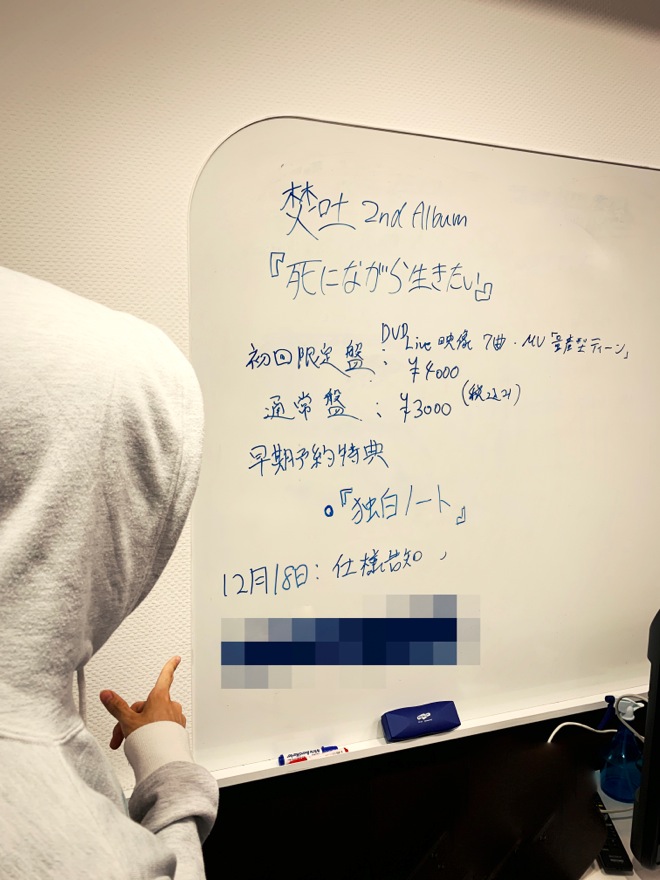 焚吐 2nd Album
『死にながら生きたい』
初回限定盤：DVD Live映像 7曲・MV「量産型ティーン」
¥4000
通常盤：¥3000(税込み)
早期予約特典
●『独白ノート』
12月18日：仕様告知